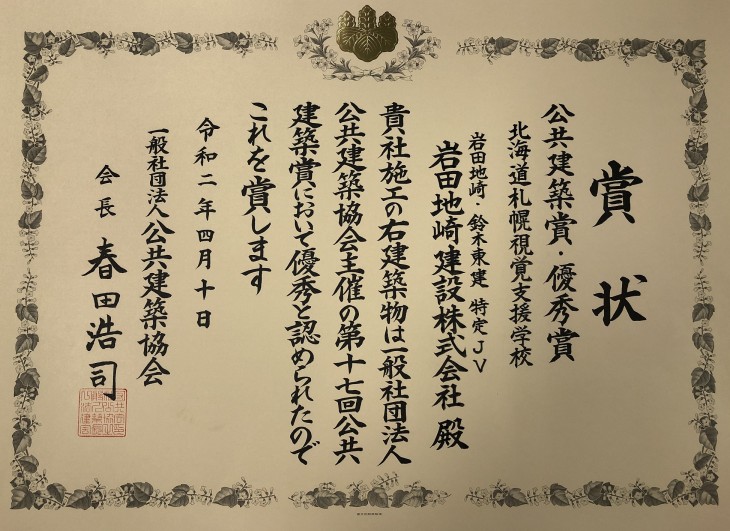 賞状
公共建築賞・優秀賞
北海道札幌視覚支援学校
岩田地崎・鈴木東建 特定JV
岩田地崎建設株式会社 殿
貴社施工の右建築物は一般社団法人
公共建築協会主催の第十七回公共
建築賞において優秀と認められたので
これを賞します
令和二年四月十日
一般社団法人公共建築協会
会長 春田浩司